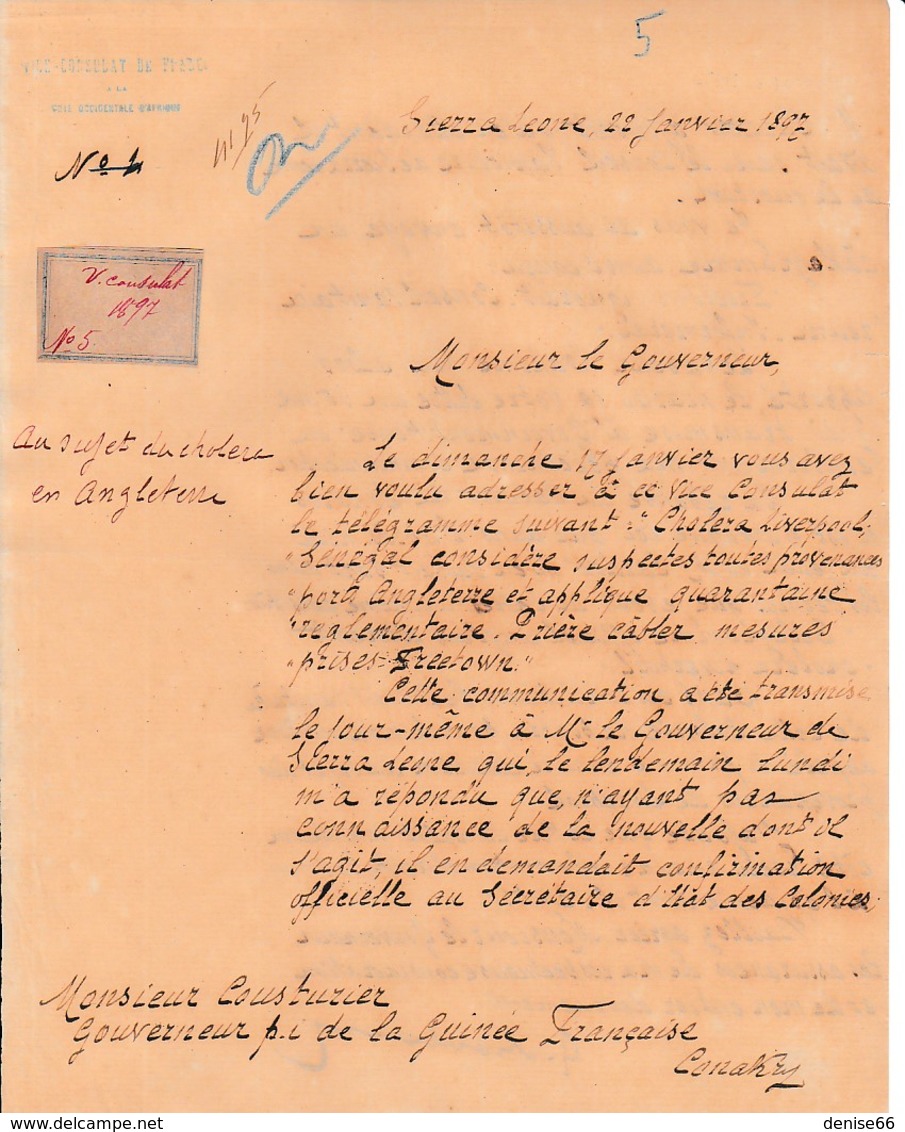 5
VICE-CONSULAT DE FRANCE
A LA
COTE OCCIDENTALE D'AFRIQUE
Sierra Leone, 22 Janvier 1897
No 4
V. consulat
1897
No 5.
Monsieur le Gouverneur,
Au sujet du cholera
en Angleterre
Le dimanche 17 Janvier vous avez
bien voulu adresser à ce Vice Consulat
le télégramme suivant: "Cholera Liverpool;
"Sénégal considère suspectes toutes provenances
"ports Angleterre et applique quarantaine
"reglementaire. Prière câbler mesures
"prises Freetown."
Cette communication a été transmise
le jour-même à Mr le Gouverneur de
Sierra Leone qui, le lendemain lundi
m'a répondu que, n'ayant pas
connaissance de la nouvelle dont il
s'agit, il en demandait confirmation
officielle au Secrétaire d'Etat des Colonies;
Monsieur Cousturier
Gouverneur p.i de la Guinée Française
Conakry
denise66